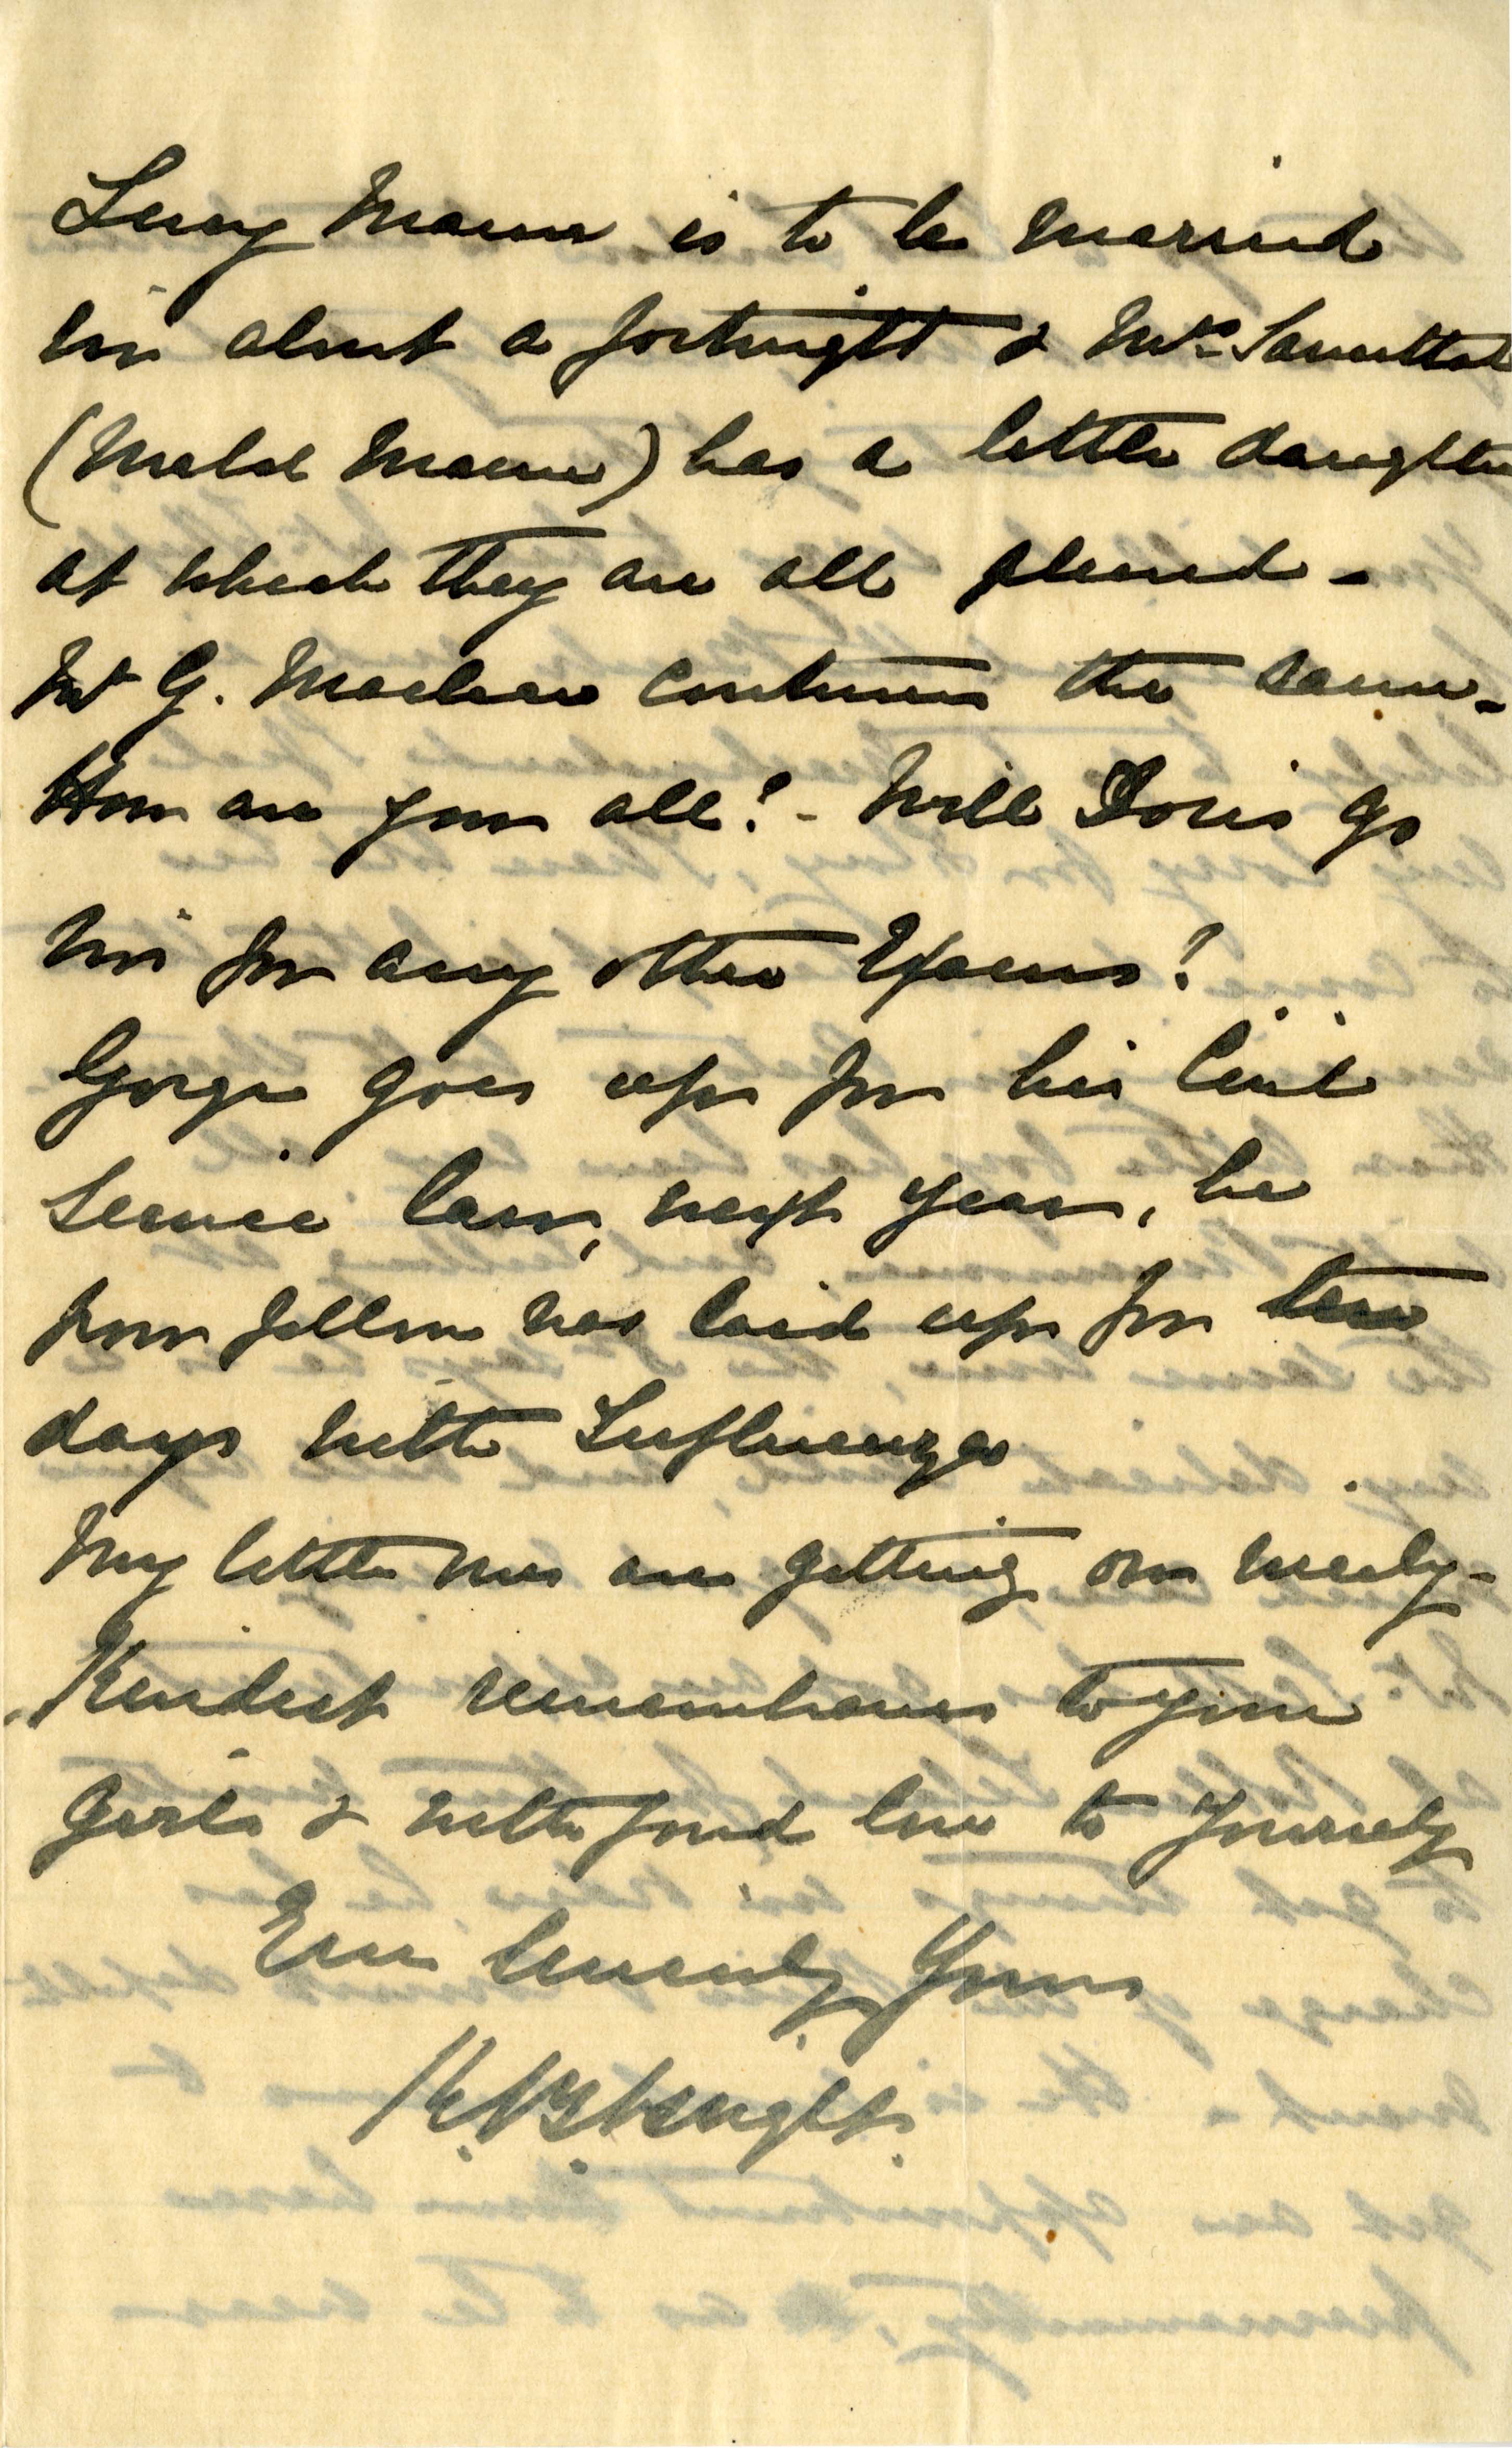 Lucy Mann is to be married
in about a fortnight & Mrs
(Mabel Mann) has a little daughter
at which they are all pleased -
Mr G. continues the same -
How are you all? - Will Doris go
in for any other Exams?
George goes up for his Civil
Service Exam, next year, he
poor fellow was laid up for ten
days with Influenza
My little ones are getting on nicely -
Kindest remembrances to your
girls & with fond love to yourself
Ever Sincerely Yours